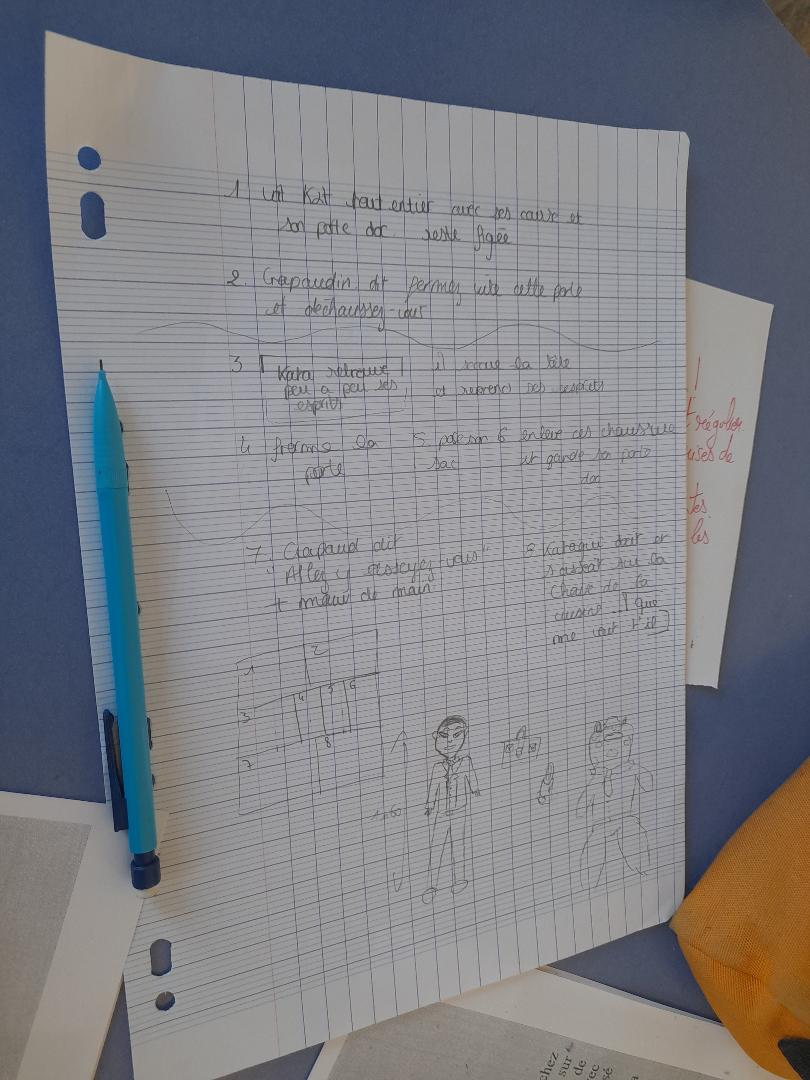 1 voit Kat tout entier avec ses
son porte doc reste figée
2. Crapaudin dit fermez vite cette porte
et déchaussez-vous
3 Kara retrouve
peu a peu ses
esprits
il secoue la tête
et reprend ses esprits
4 ferme la
porte
5 pose son
sac
6 enleve ces chaussure
et garde son porte
doc
7. Crapaud dit
"Allez y asseyez-vous"
+ main
8 Kara
s'assoit sur la
chaise de la
cuisine que
me veut t'il
1
2
3
4
5
6
7
8
1m60
t régulier
ises de
tes
les
chez
sur
de